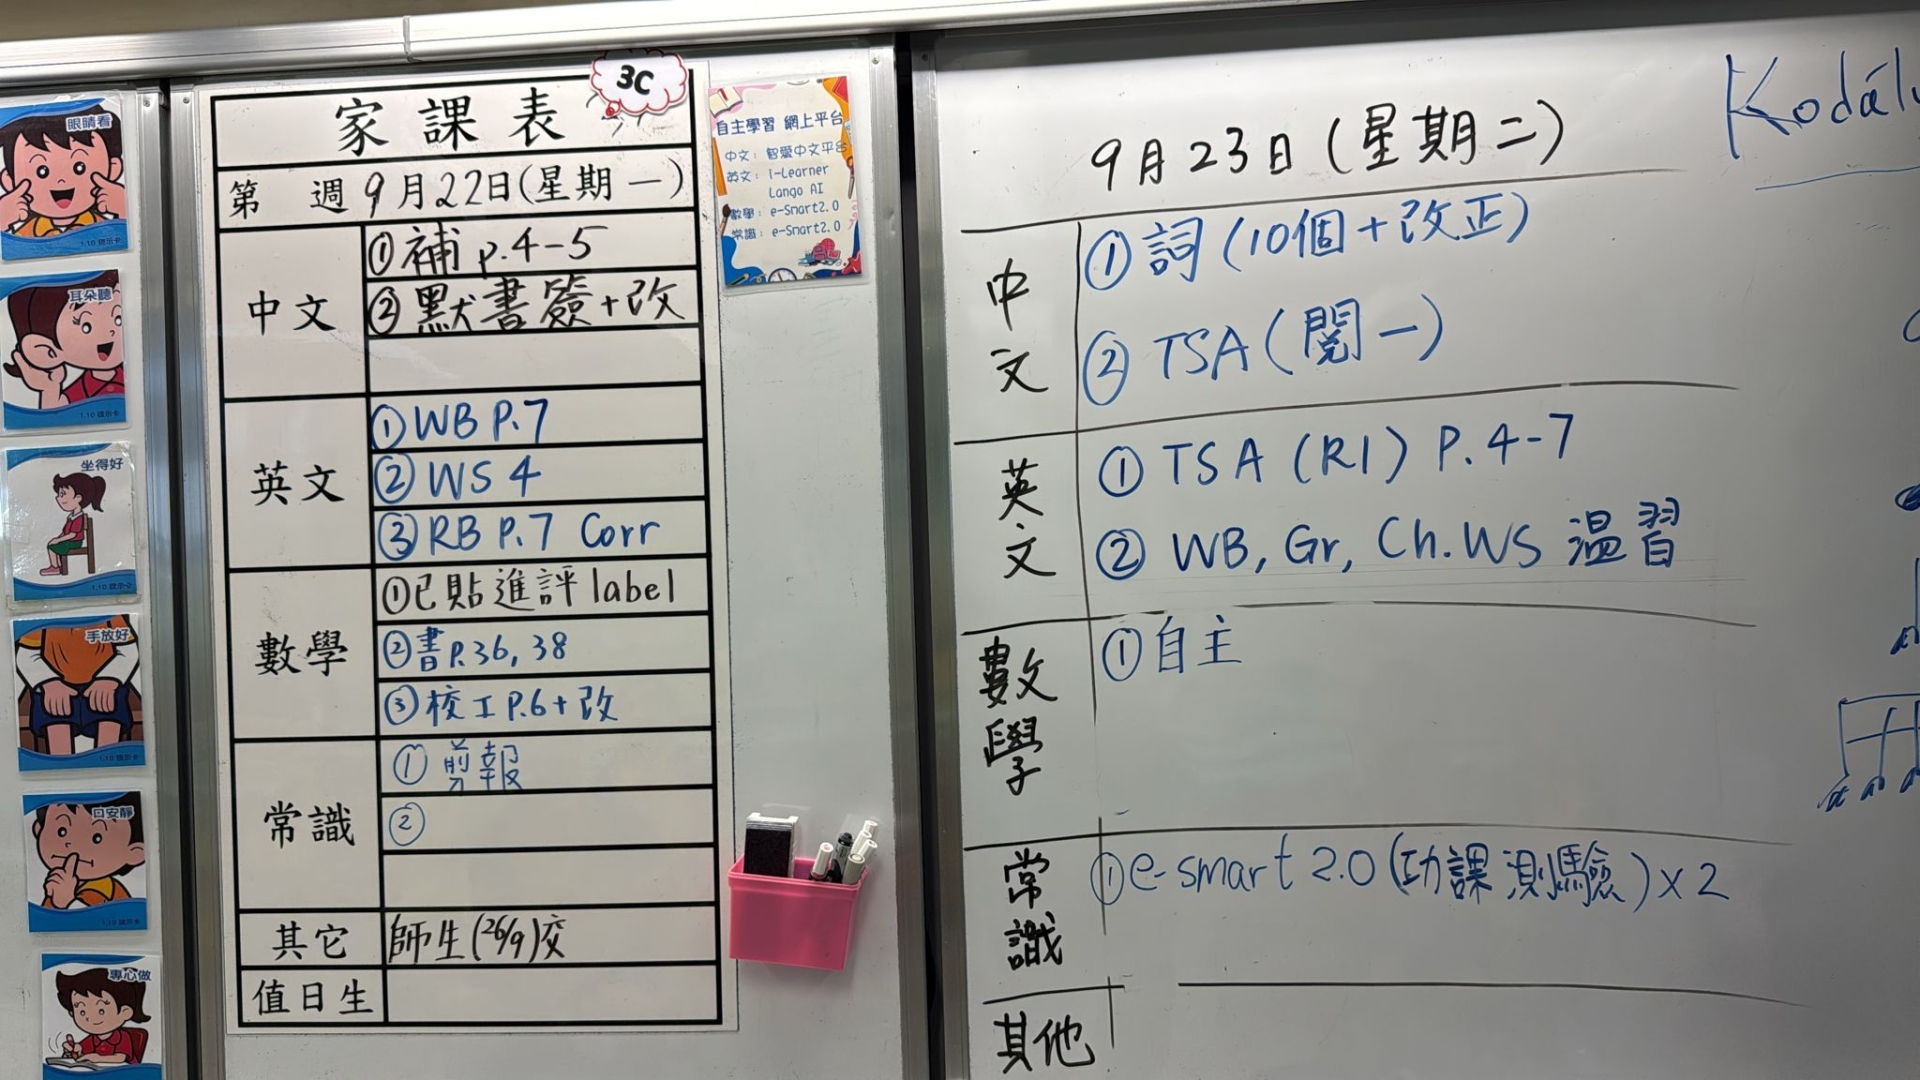 眼睛看
1.10 提示卡
耳朵聽
1.10 提示卡
坐得好
1.10 提示卡
手放好
1.10 提示卡
口安靜
1.10 提示卡
專心做
3C
家課表
第 週 9月22日(星期一)
中文
①補 p.4-5
②默書簽+改
英文
①WB P.7
②WS 4
③RB P.7 Corr
數學
①已貼進評label
②書P.36, 38
③校工P.6+改
常識
①剪報
②
其它
師生(26/9)交
值日生
自主學習 網上平台
中文: 智愛中文平台
英文: i-Learner
Lango AI
數學: e-Smart2.0
常識: e-Smart2.0
9月23日(星期二)
中文
①詞(10個+改正)
②TSA(閱一)
英文
①TSA (R1) P.4-7
②WB, Gr, Ch.WS 溫習
數學
①自主
常識
①e-smart 2.0(功課測驗)x2
其他